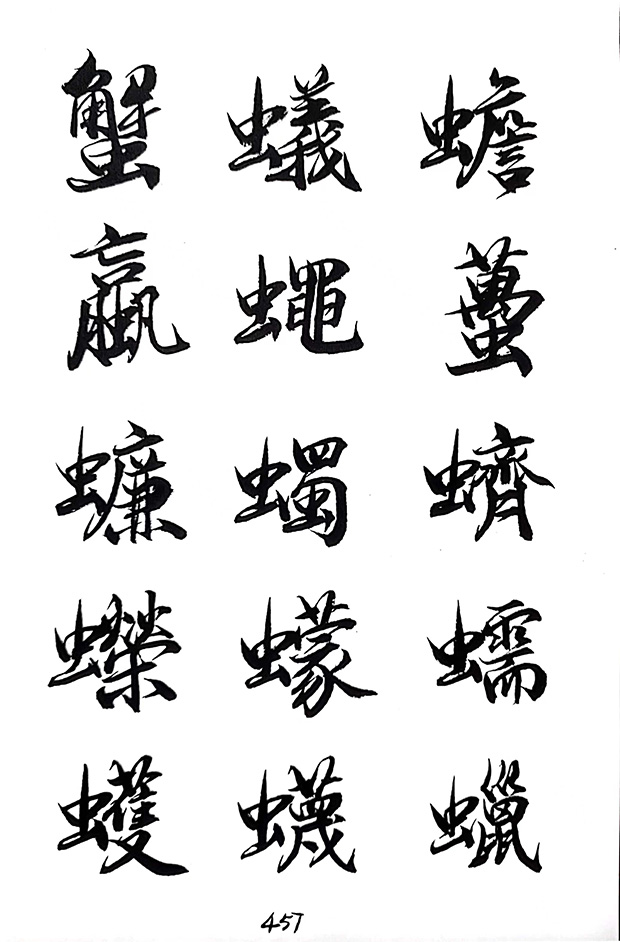 蟹 蟻 蟾
蠃 蠅 蠆
蠊 蠋 蠐
蠑 蠓 蠕
蠖 蠛 蠟
457